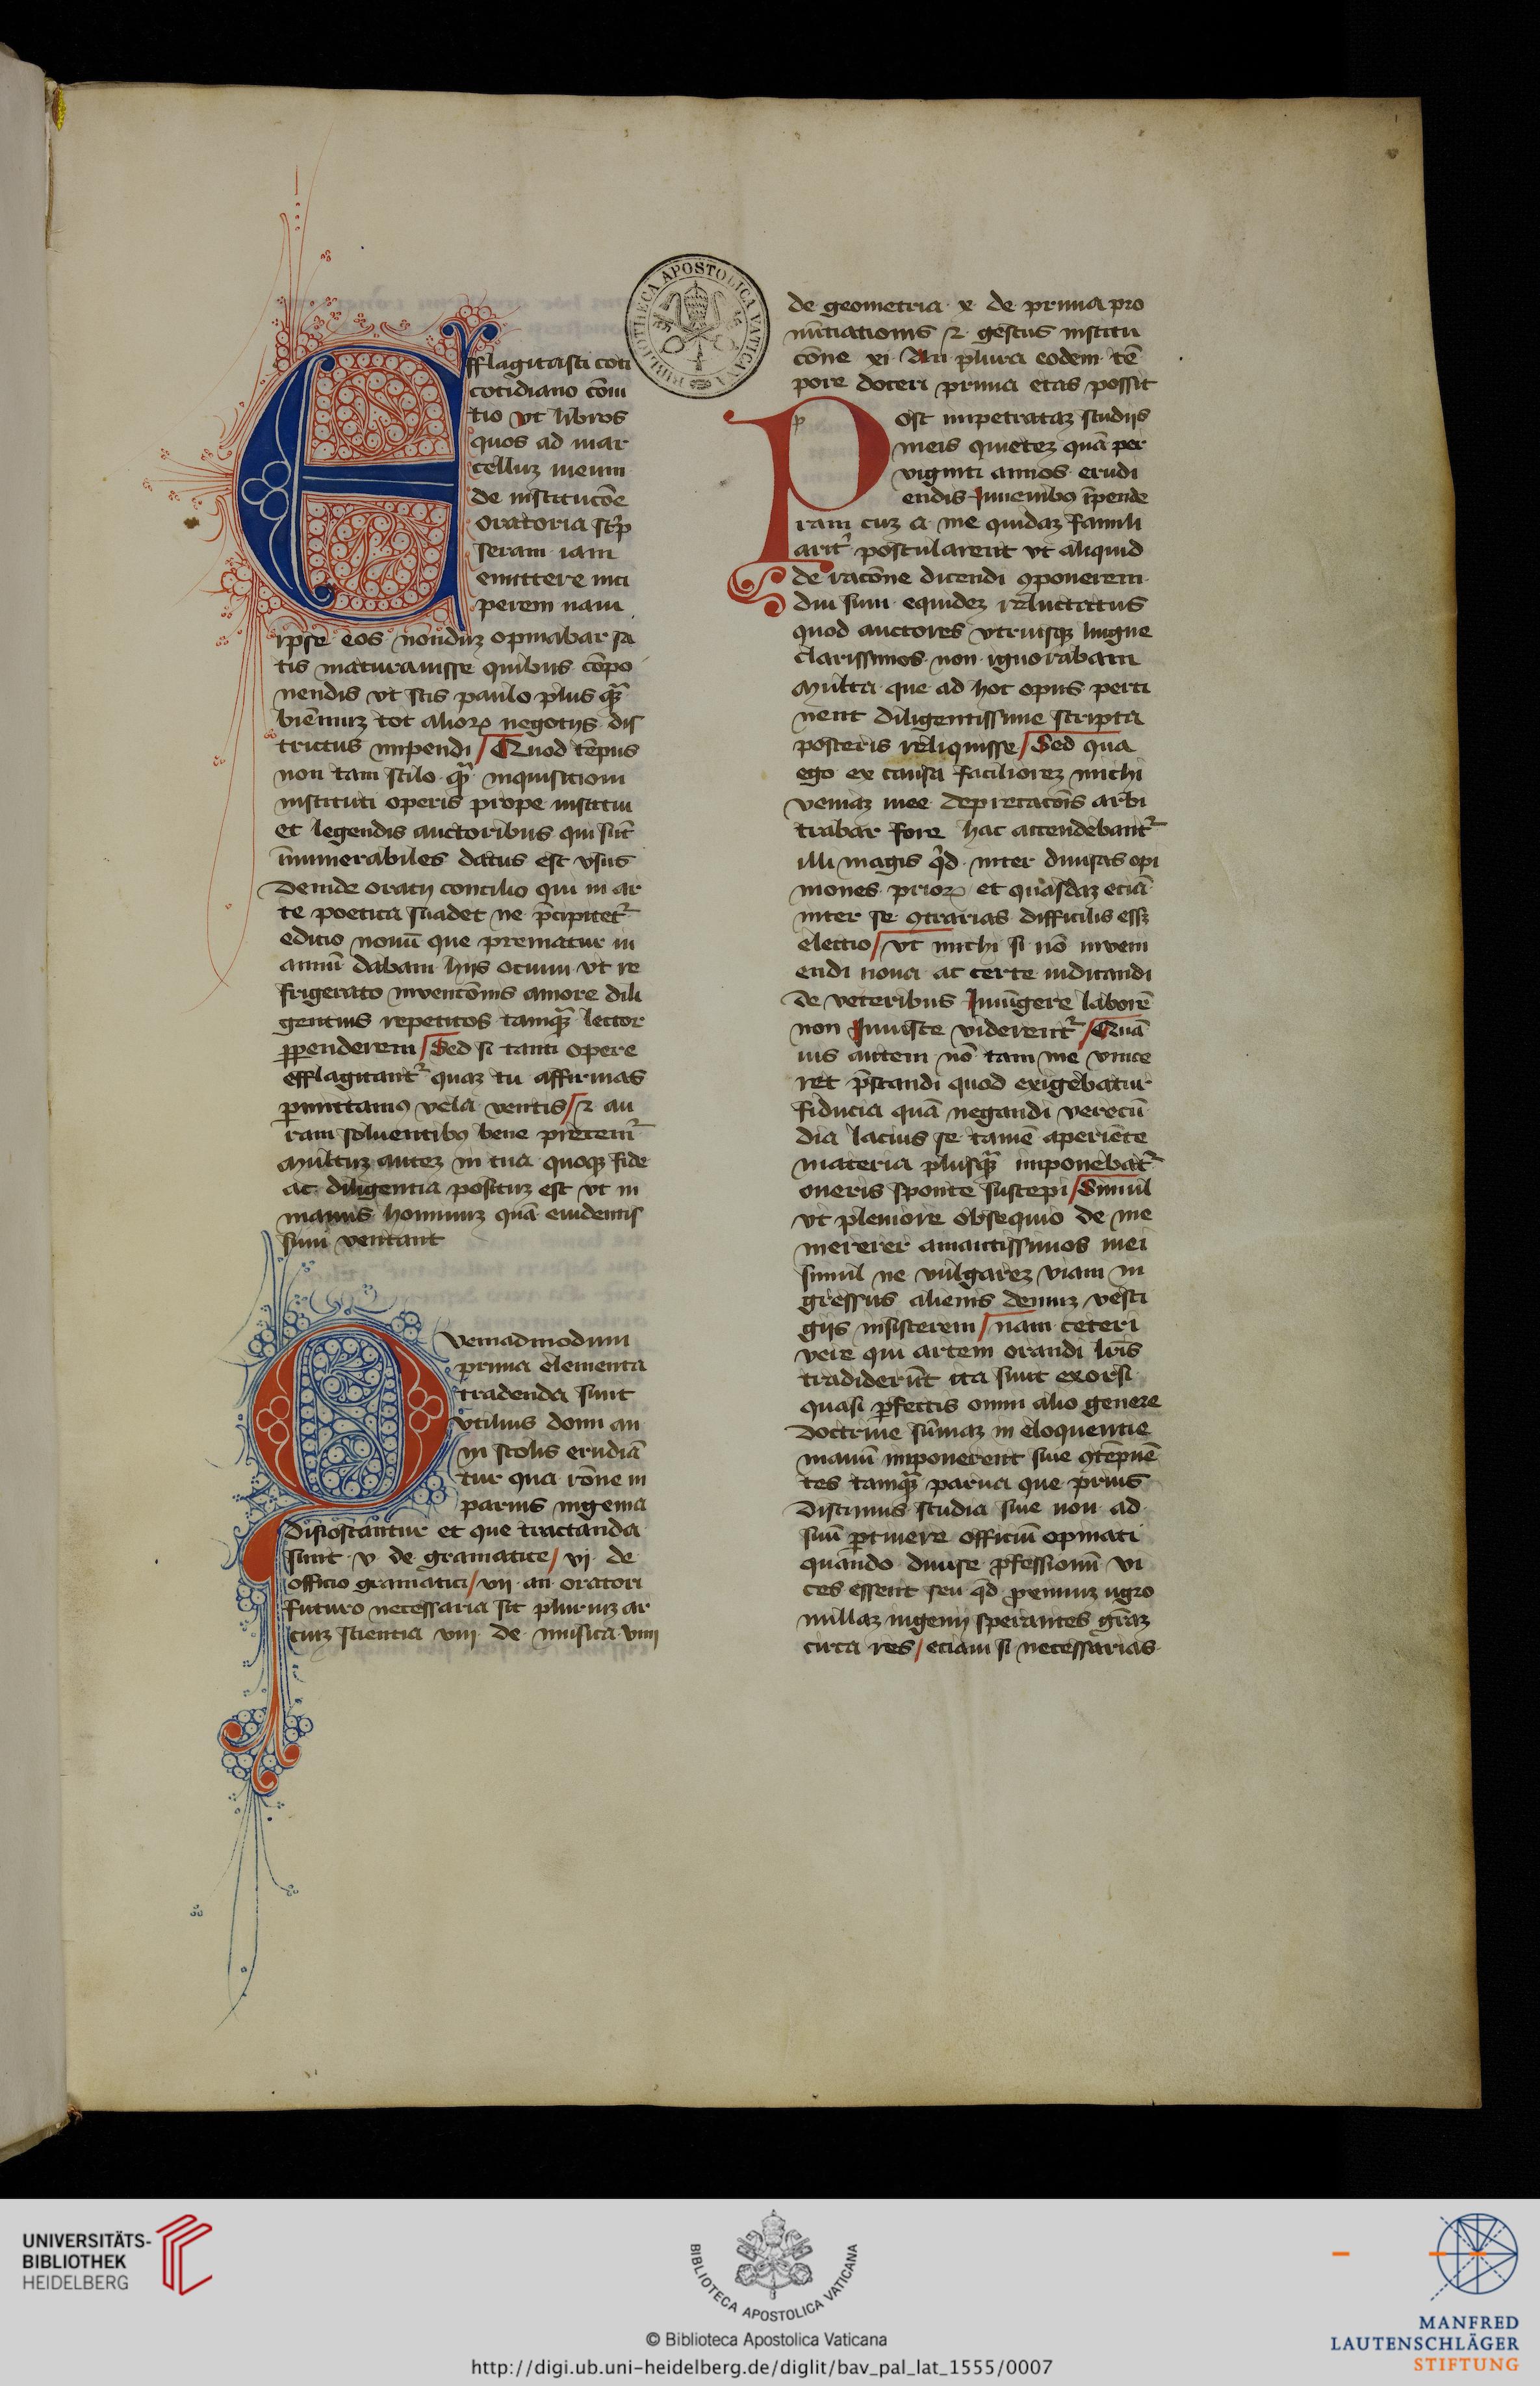 Efflagitasti coti
cotidiano cōui
tio vt libros
quos ad mar
celluꝫ meum
de institucōe
oratoria sc̄p
seram iam
emittere inci
perem nam
ipse eos nonduꝫ opinabar sa
tis maturauisse quibus cōpo
nendis vt scis paulo plus qᷓ
biēniuꝫ tot alioꝝ negotijs dis
trictus impendi / Quod tēpus
non tam stilo qᷓ inquisitioni
instituti operis prope institui
et legendis auctoribus qui sūt
īnumerabiles datus est vsus
Deinde oracij concilio qui in ar
te poetica suadet ne p̄cipitetᷣ
edicio nonū que prematur in
annū dabam hijs ocium vt re
frigerato inventōnis amore dili
gentius repetitos tamqᷓ lector
ꝑpenderem / Sed si tanti opere
efflagitantᷣ quaꝫ tu affirmas
ꝑmittamꝰ vela ventis / ⁊ au
ram soluentibꝰ bene precemᷣ
Multuꝫ auteꝫ in tua quoqꝫ fide
ac diligentia posituꝫ est vt in
manus hominuꝫ quā emdentis
sum veniant
Quemadmodum
prima elementa
tradenda sunt
Vtilius domi an
in scolis erudiā
tur qua rōne in
paruis ingenia
Disioscantur et que tractanda
sunt v de gramatice / vj de
officio gramatici / vii an oratori
futuro necessaria sit pluriuꝫ ar
ciuꝫ scientia viii de musica viiij
de geometria x de prima pro
nūtiationis ⁊ gestus institu
cōne xi An plura eodem tē
pore doceri prima etas possit
Post impetrataꝫ studijs
meis quieteꝫ quā per
viginti annos erudi
endis Iuuenibꝰ īpende
ram cuꝫ a me quidaꝫ famili
aritᷣ postularent vt aliquid
de racōne dicendi ꝯponerem
diu sum equideꝫ reluctatus
quod auctores vtriusqꝫ lingue
clarissimos non ignorabam
Multa que ad hoc opus perti
nent diligentissime scripta
posteris reliquisse / Sed qua
ego ex causa facilioreꝫ michi
veniaꝫ mee deprecacōis arbi
trabar fore hac accendebantᷣ
illi magis qd̄ inter diuisas opi
niones prioꝝ et quasdaꝫ eciā
inter se ꝯtrarias difficilis essꝫ
electio / vt michi si nō inveni
endi noua ac certe iudicandi
de veteribus Iniūgere laborē
non Iniuste viderentᷣ / Quā
uis autem nō tam me vince
ret p̄standi quod exigebatur
fiducia quā negandi verecū
dia lacius se tamē aperiēte
materia plusqᷓ imponebatᷣ
oneris sponte suscepi / Simul
vt pleniore obsequio de me
mererer amantissimos mei
simul ne vulgareꝫ viam in
gressus alienis demuꝫ vesti
gijs insisterem / nam ceteri
vere qui artem orandi lr̄is
tradiderūt ita sunt exorsi
quasi ꝑfectis omni alio genere
doctrine sūmaꝫ in eloquentie
manū imponerent siue ꝯtēpnē
tes tamqᷓ parua que prius
discimus studia siue non ad
suū ꝑtinere officiū opinati
quando diuise ꝓfessionū vi
ces essent seu qd̄ ꝓximuꝫ ugro
nullaꝫ ingenij sperantes grā̄ꝫ
circa res / eciam si necessarias
BIBLIOTHECA APOSTOLICA VATICANA
BIBLIOTH.
UNIVERSITÄTS-
BIBLIOTHEK
HEIDELBERG
BIBLIOTECA APOSTOLICA VATICANA
© Biblioteca Apostolica Vaticana
http://digi.ub.uni-heidelberg.de/diglit/bav_pal_lat_1555/0007
MANFRED
LAUTENSCHLÄGER
STIFTUNG